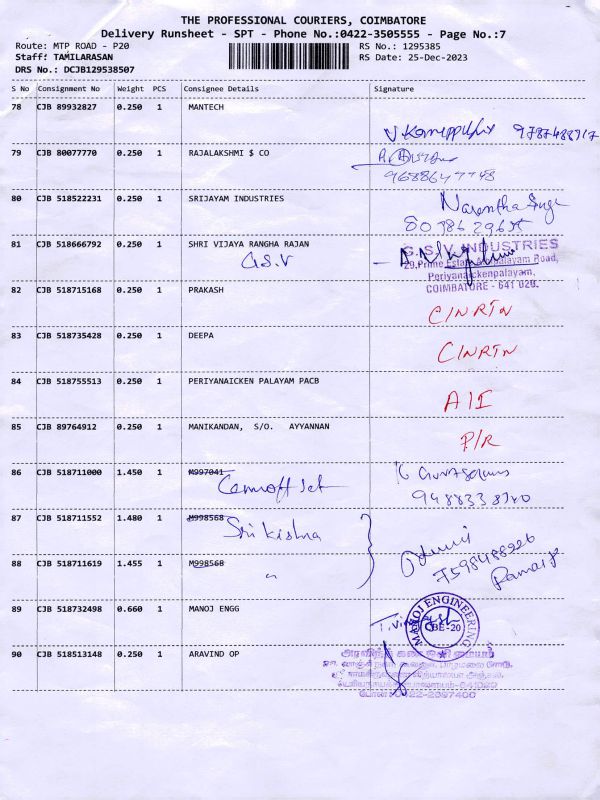 THE PROFESSIONAL COURIERS, COIMBATORE
Delivery Runsheet - SPT - Phone No.:0422-3505555 - Page No.:7
Route: MTP ROAD - P20
RS No.: 1295385
Staff: TAMILARASAN
RS Date: 25-Dec-2023
DRS No.: DCJB129538507
S No Consignment No Weight PCS Consignee Details Signature
78 CJB 89932827 0.250 1 MANTECH
79 CJB 80077770 0.250 1 RAJALAKSHMI $ CO
9688647748
80 CJB 518522231 0.250 1 SRIJAYAM INDUSTRIES
81 CJB 518666792 0.250 1 SHRI VIJAYA RANGHA RAJAN
G.S.V
G.S.V. INDUSTRIES
Periyanaickenpalayam,
COIMBATORE - 641 020.
82 CJB 518715168 0.250 1 PRAKASH
C/NRTN
83 CJB 518735428 0.250 1 DEEPA
C/NRTN
84 CJB 518755513 0.250 1 PERIYANAICKEN PALAYAM PACB
A/I
85 CJB 89764912 0.250 1 MANIKANDAN, S/O. AYYANNAN
P/R
86 CJB 518711000 1.450 1 M997041
87 CJB 518711552 1.480 1 M998568
Sri kishna
7598488926
88 CJB 518711619 1.455 1 M998568
89 CJB 518732498 0.660 1 MANOJ ENGG
MANOJ ENGINEERING
CBE-20
90 CJB 518513148 0.250 1 ARAVIND OP